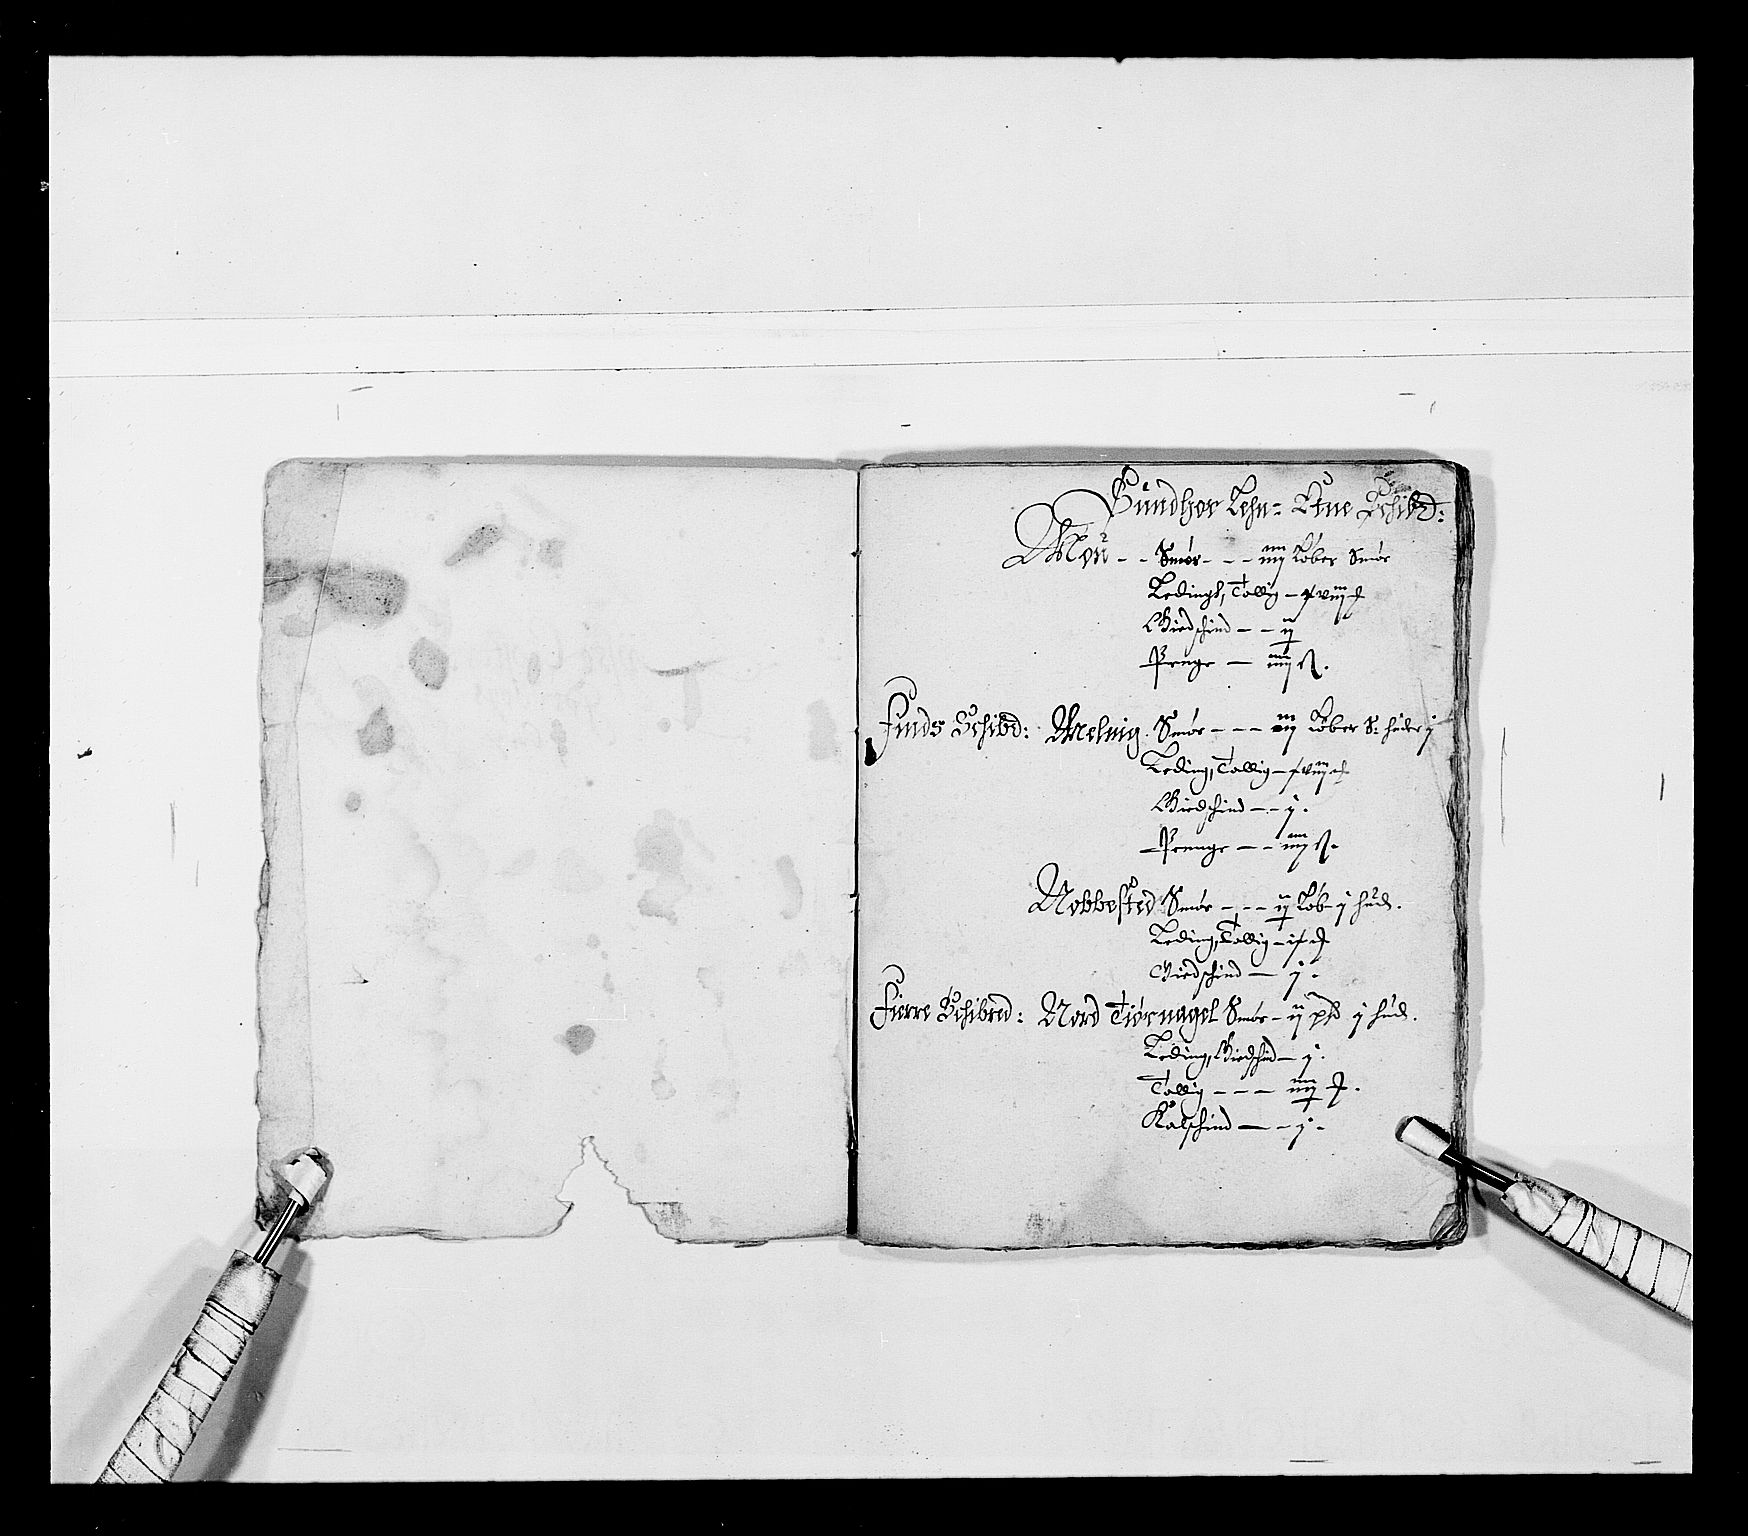 Sundhor Lehn: Etne Schibd:
Mou - - Smör - - - iiij Löber Smör
Ledings, Tollig -
Giedschind - - ij
Penge - iiij
Finds Schibd: Meluig. Smör - - - iij Löber S: huder j
Leding, Tollig -
Giedschind - - j.
Penge - - iiij
Nobbested Smör - - - ij Löb j hud.
Leding, Tollig -
Giedschind - j.
Fierre Schibred: Nord Tiörnagel Smör - ij pd j hud.
Leding, Giedschid - j.
Tollig - - - iiij
Kalschind - - j.